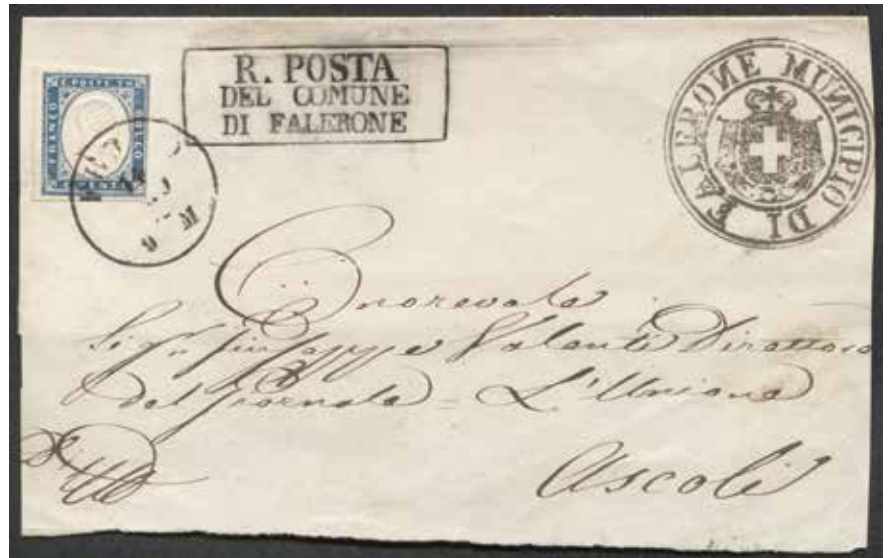 R. POSTA
DEL COMUNE
DI FALERONE
MUNICIPIO DI FALERONE
FRANCO
Onorevole
Sigr Giuseppe Valenti Direttore
del Giornale = L'Unione
Ascoli